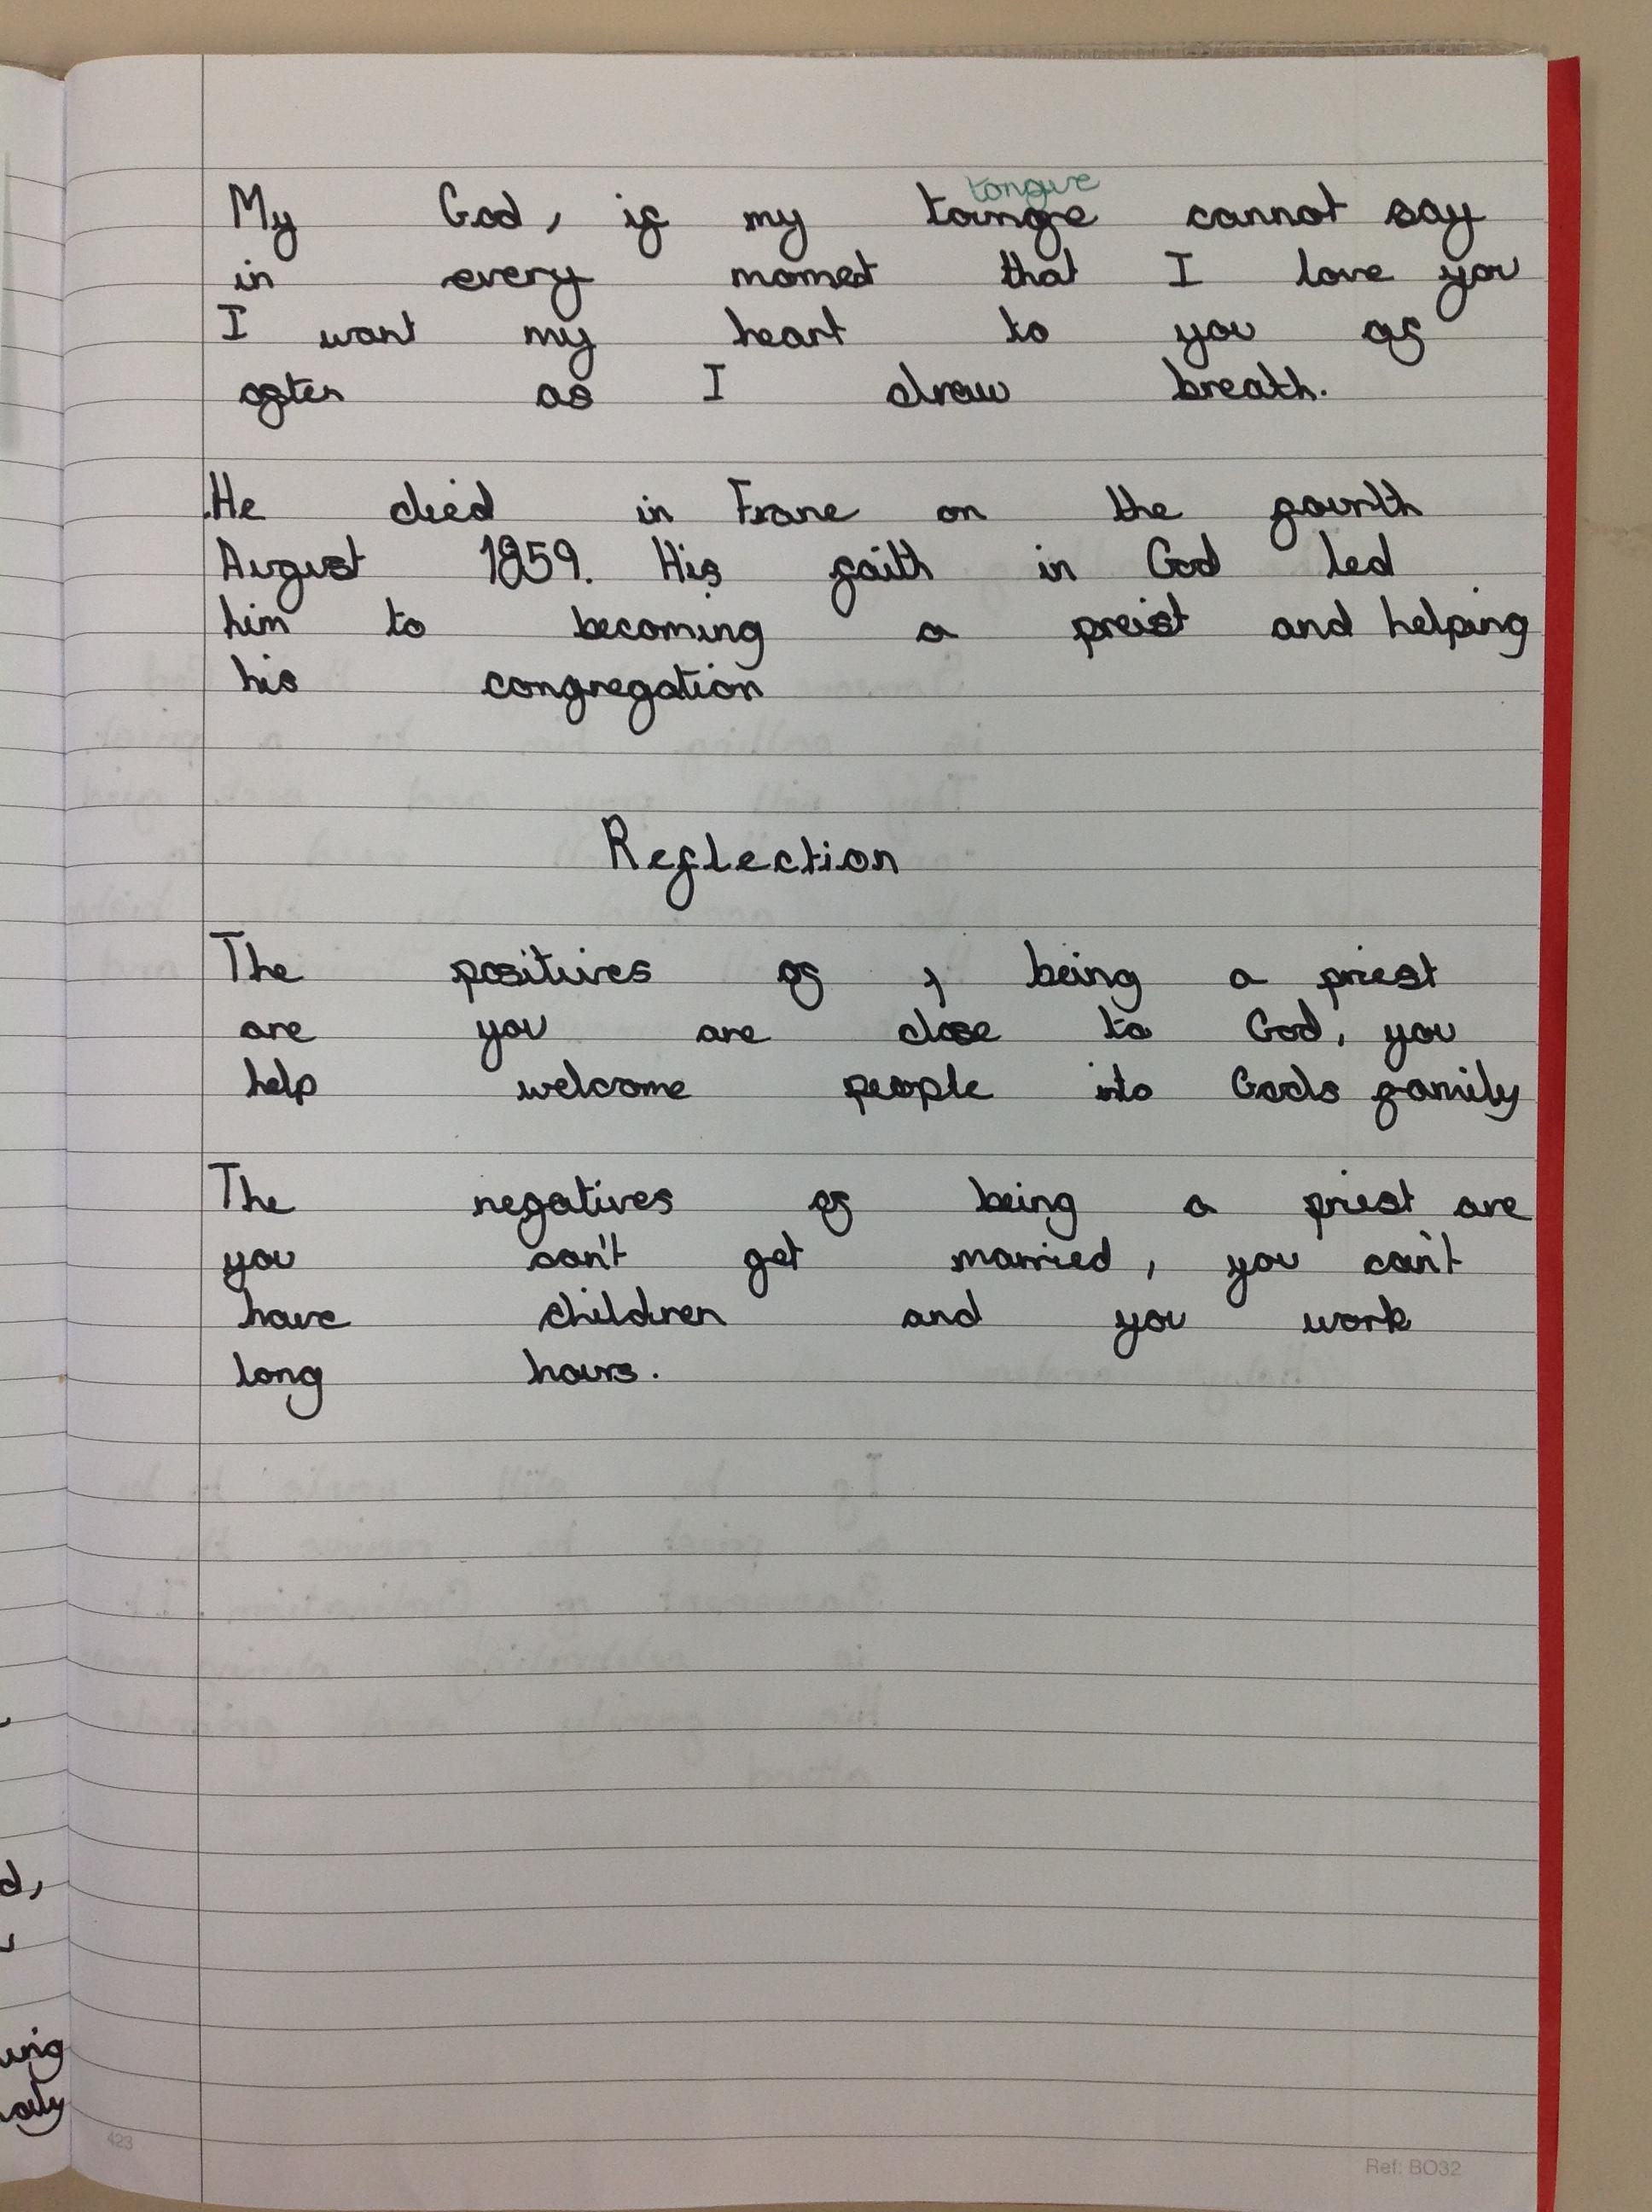 tongue
My God, if my tounge cannot say
in every momet that I love you
I want my heart to you as
often as I draw breath.
He died in Frane on the fourth
August 1859. His faith in God led
him to becoming a preist and helping
his congregation
Reflection
The positives of , being a priest
are you are close to God, you
help welcome people into Gods family
The negatives of being a priest are
you can't get married, you can't
have children and you work
long hours.
d,
423
Ref: BO32